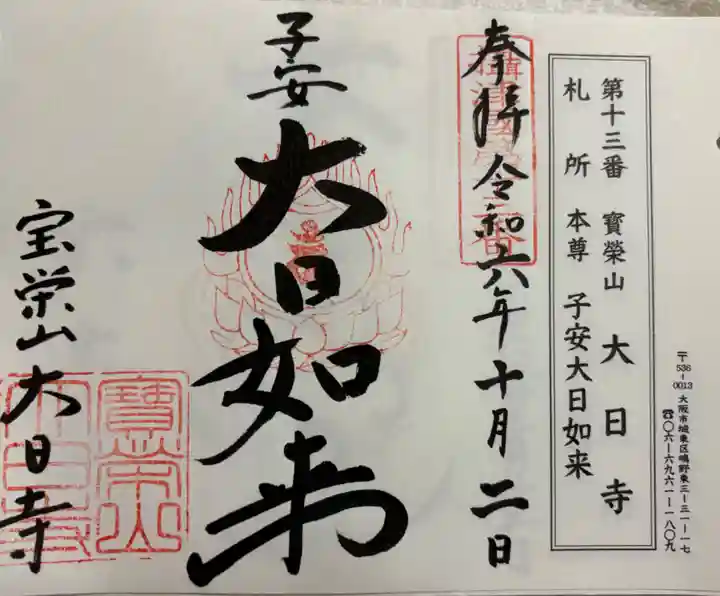 〒536-0013 大阪市城東区鴫野東三ー三一ー一七
☎〇六ー六九六一ー一八〇九
第十三番 寳榮山 大日寺
札所 本尊 子安大日如来
奉拝 令和六年十月二日
子安
大日如来
宝栄山大日寺
寳榮山
大日寺